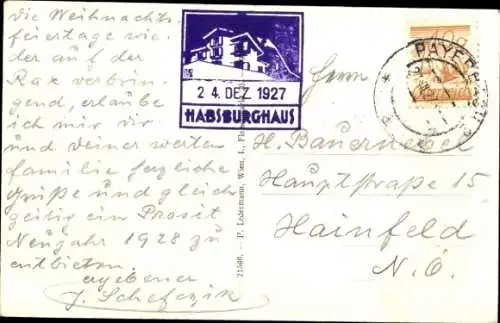 die Weihnachts
feiertage wie
der auf der
Rax verbrin
gend, erlaube
ich mir dir
und deiner werten
familie herzliche
Grüße und gleich
zeitig ein Prosit
Neujahr 1928 zu
entbieten
J. Schefczik
24. DEZ. 1927
HABSBURGHAUS
P. Ledermann, Wien, I.,
40g
PAYER
Herrn
H. Bauernebel
Hauptstraße 15
Hainfeld
N. Ö.